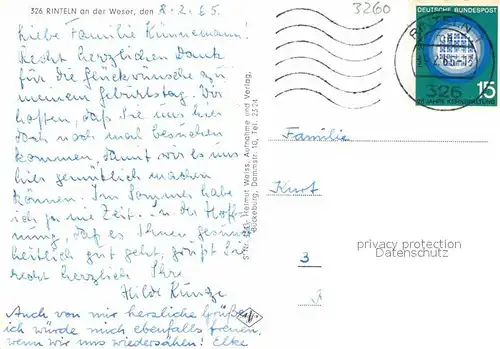 326 RINTELN an der Weser, den 8.2.65
Liebe Familie Künnemann!
Recht herzlichen Dank
für die Glückwünsche zu
meinem Geburtstag. Wir
hoffen, daß Sie uns hier
doch noch mal besuchen
kommen, damit wir es uns
hier gemütlich machen
können. Im Sommer habe
ich ja nie Zeit. In der Hoff-
nung, daß es Ihnen gesund-
heitlich gut geht, grüßt Sie
recht herzlich Ihre
Hilde
Auch von mir herzliche Grüße,
ich würde mich ebenfalls freuen,
wenn wir uns wiedersähen! Elke
Helmut Weiss, Aufnahme und Verlag,
Bückeburg, Dammstr. 10, Tel. 23 24
3260
DEUTSCHE BUNDESPOST
15
RINTELN
326
Familie
Kurt
3
privacy protection
Datenschutz